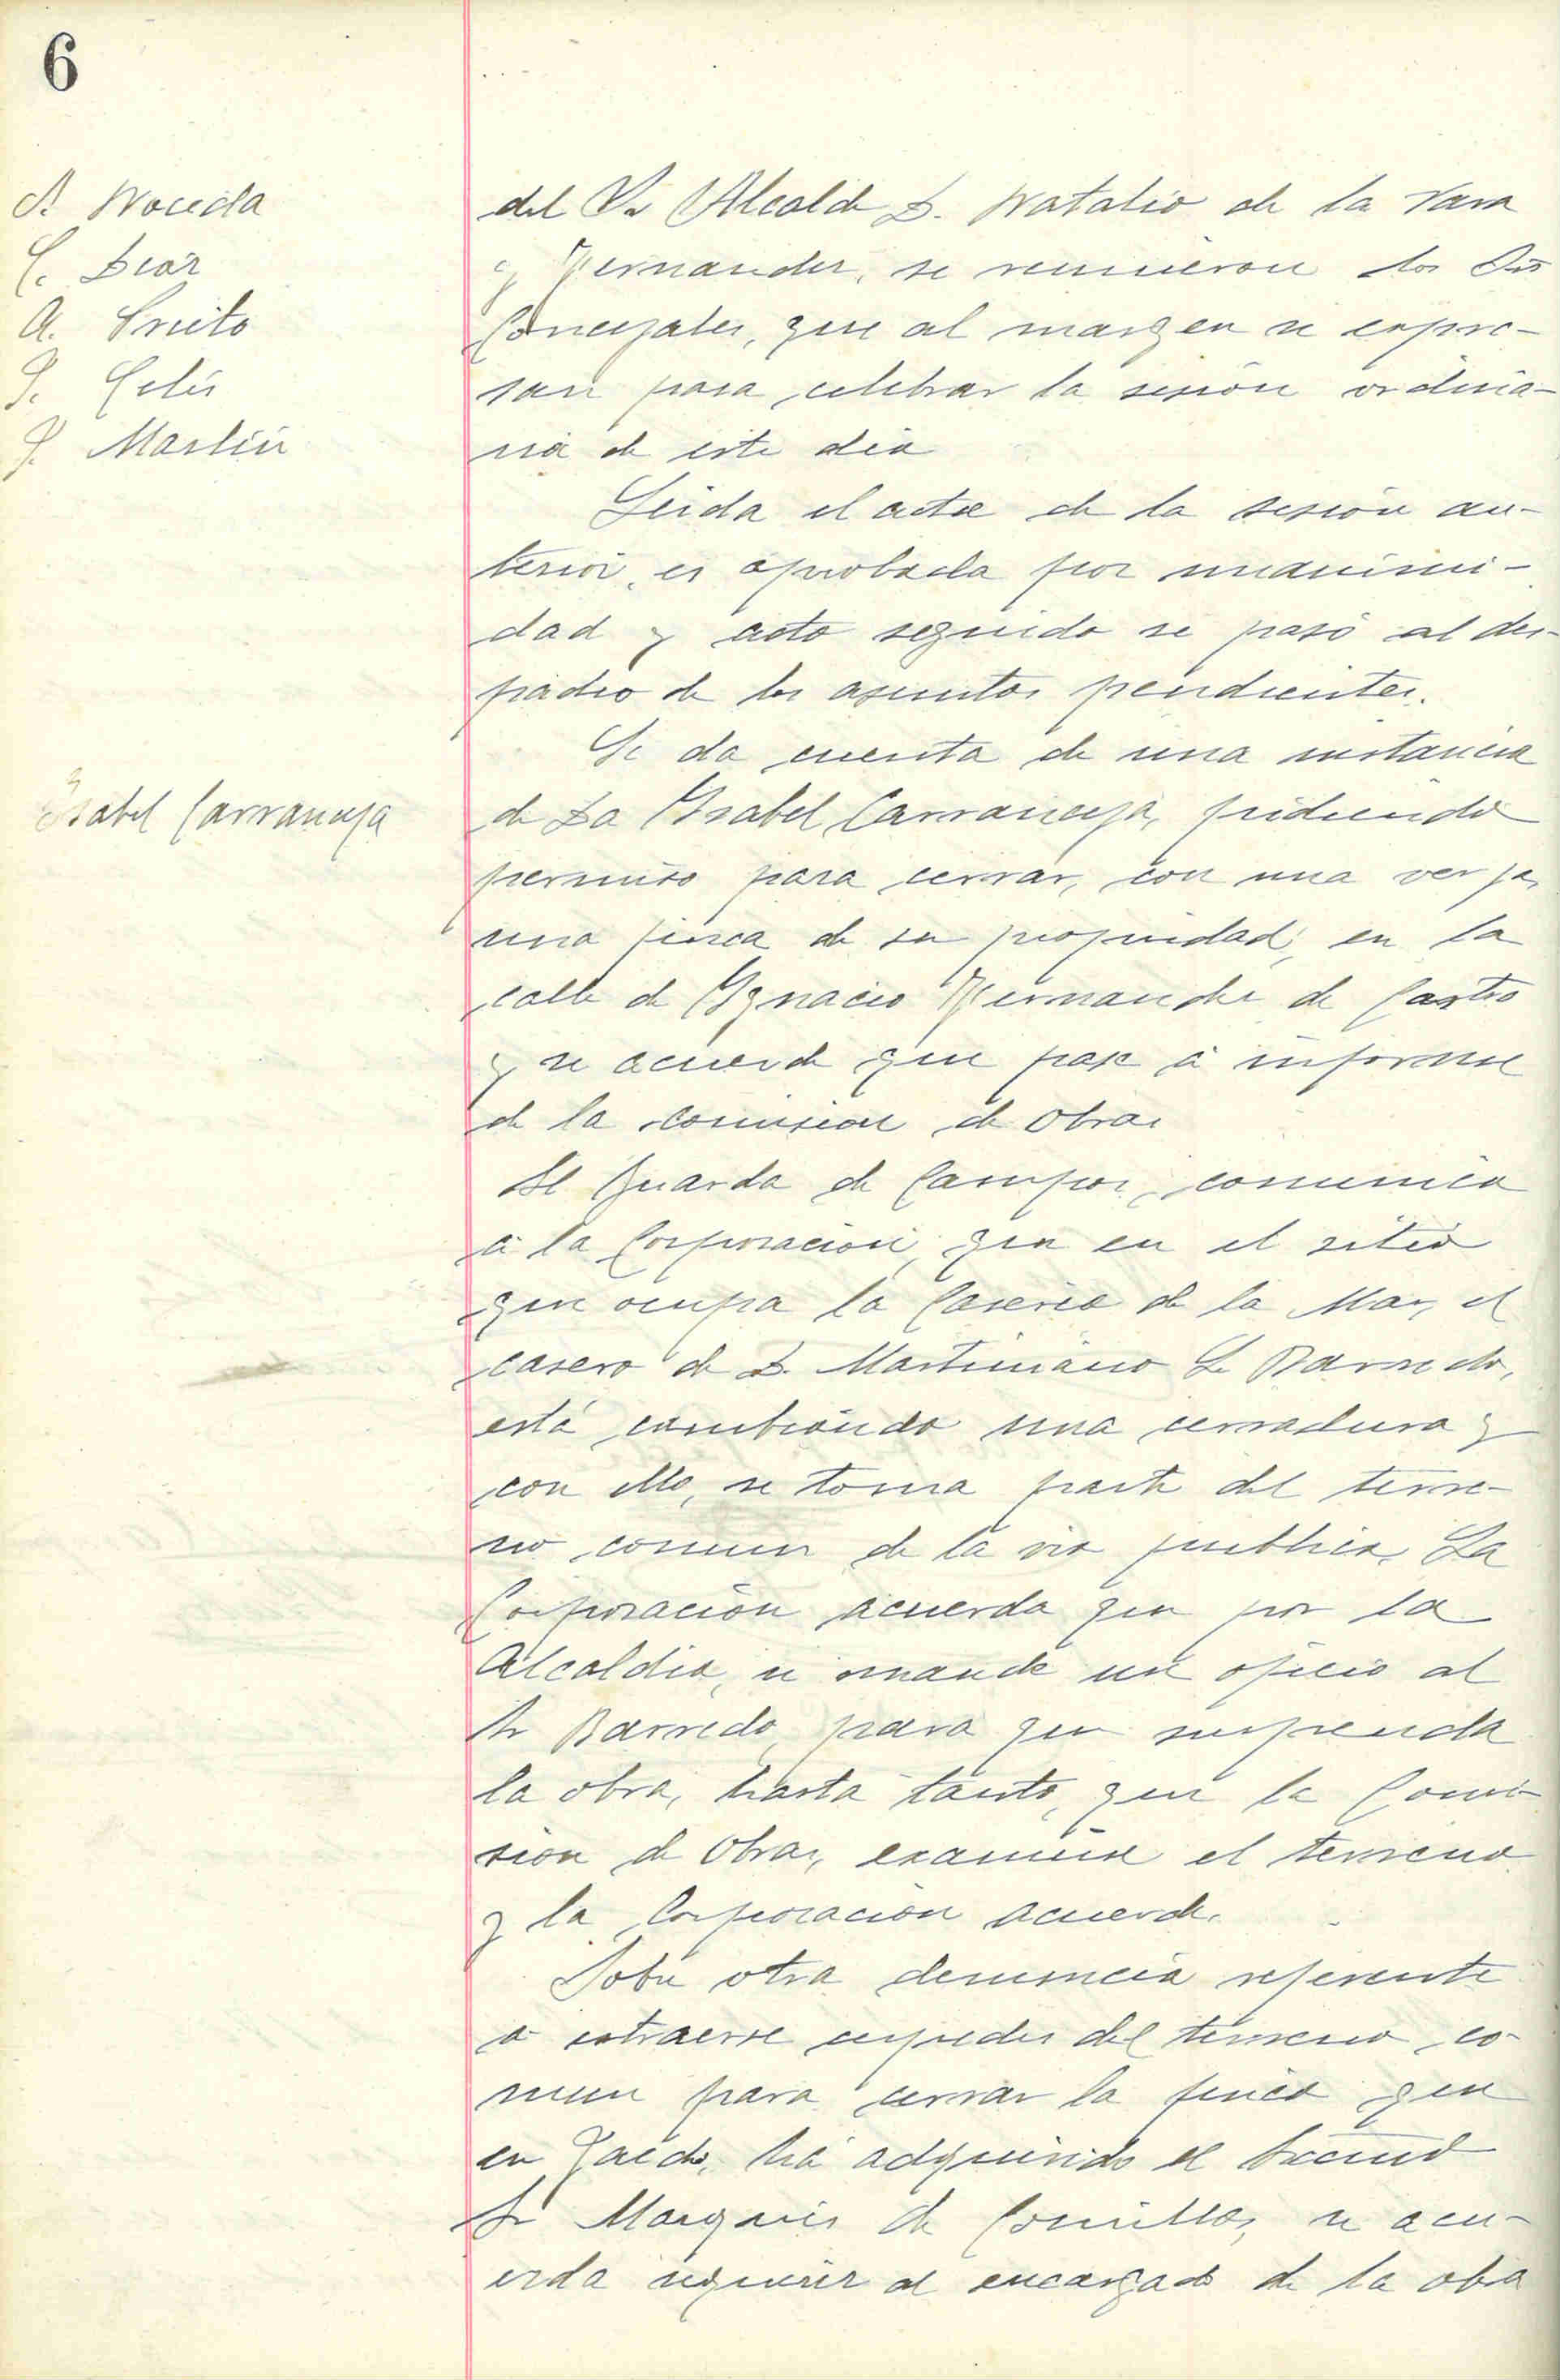 6
A. Noceda
C. Diaz
A. Prieto
J. Celis
J. Martin
del Sr Alcalde D. Natalio de la Vara
y Fernandez, se reunieron los Srs
Concejales, que al margen se expre-
san para celebrar la sesión ordina-
ria de este dia
Leida el acta de la sesión an-
terior, es aprobada por unanimi-
dad y acto seguido se pasó al des-
pacho de los asuntos pendientes.
Isabel Carranceja
Se da cuenta de una instancia
de Da Isabel Carranceja, pidiendo
permiso para cerrar, con una verja,
una finca de su propiedad, en la
calle de Ygnacio Fernandez de Castro
y se acuerda que pase á informe
de la comision de obras
El Guarda de Campos, comunica
á la Corporación, que en el sitio
que ocupa la Caseria de la Mar, el
casero de D. Martiniano L. Barredo,
está cambiando una cerradura y
con ello, se toma parte del terre-
no comun de la via publica. La
Corporación acuerda que por la
Alcaldia, se mande un oficio al
Sr Barredo, para que suspenda
la obra, hasta tanto, que la Comi-
sion de Obras, examine el terreno
y la Corporación acuerde.
Sobre otra denuncia referente
a extraerse cespedes del terreno co-
mun para cerrar la finca que
en ha adquirido el Excmo
Sr Marqués de Comillas, se acu-
erda requerir al encargado de la obra